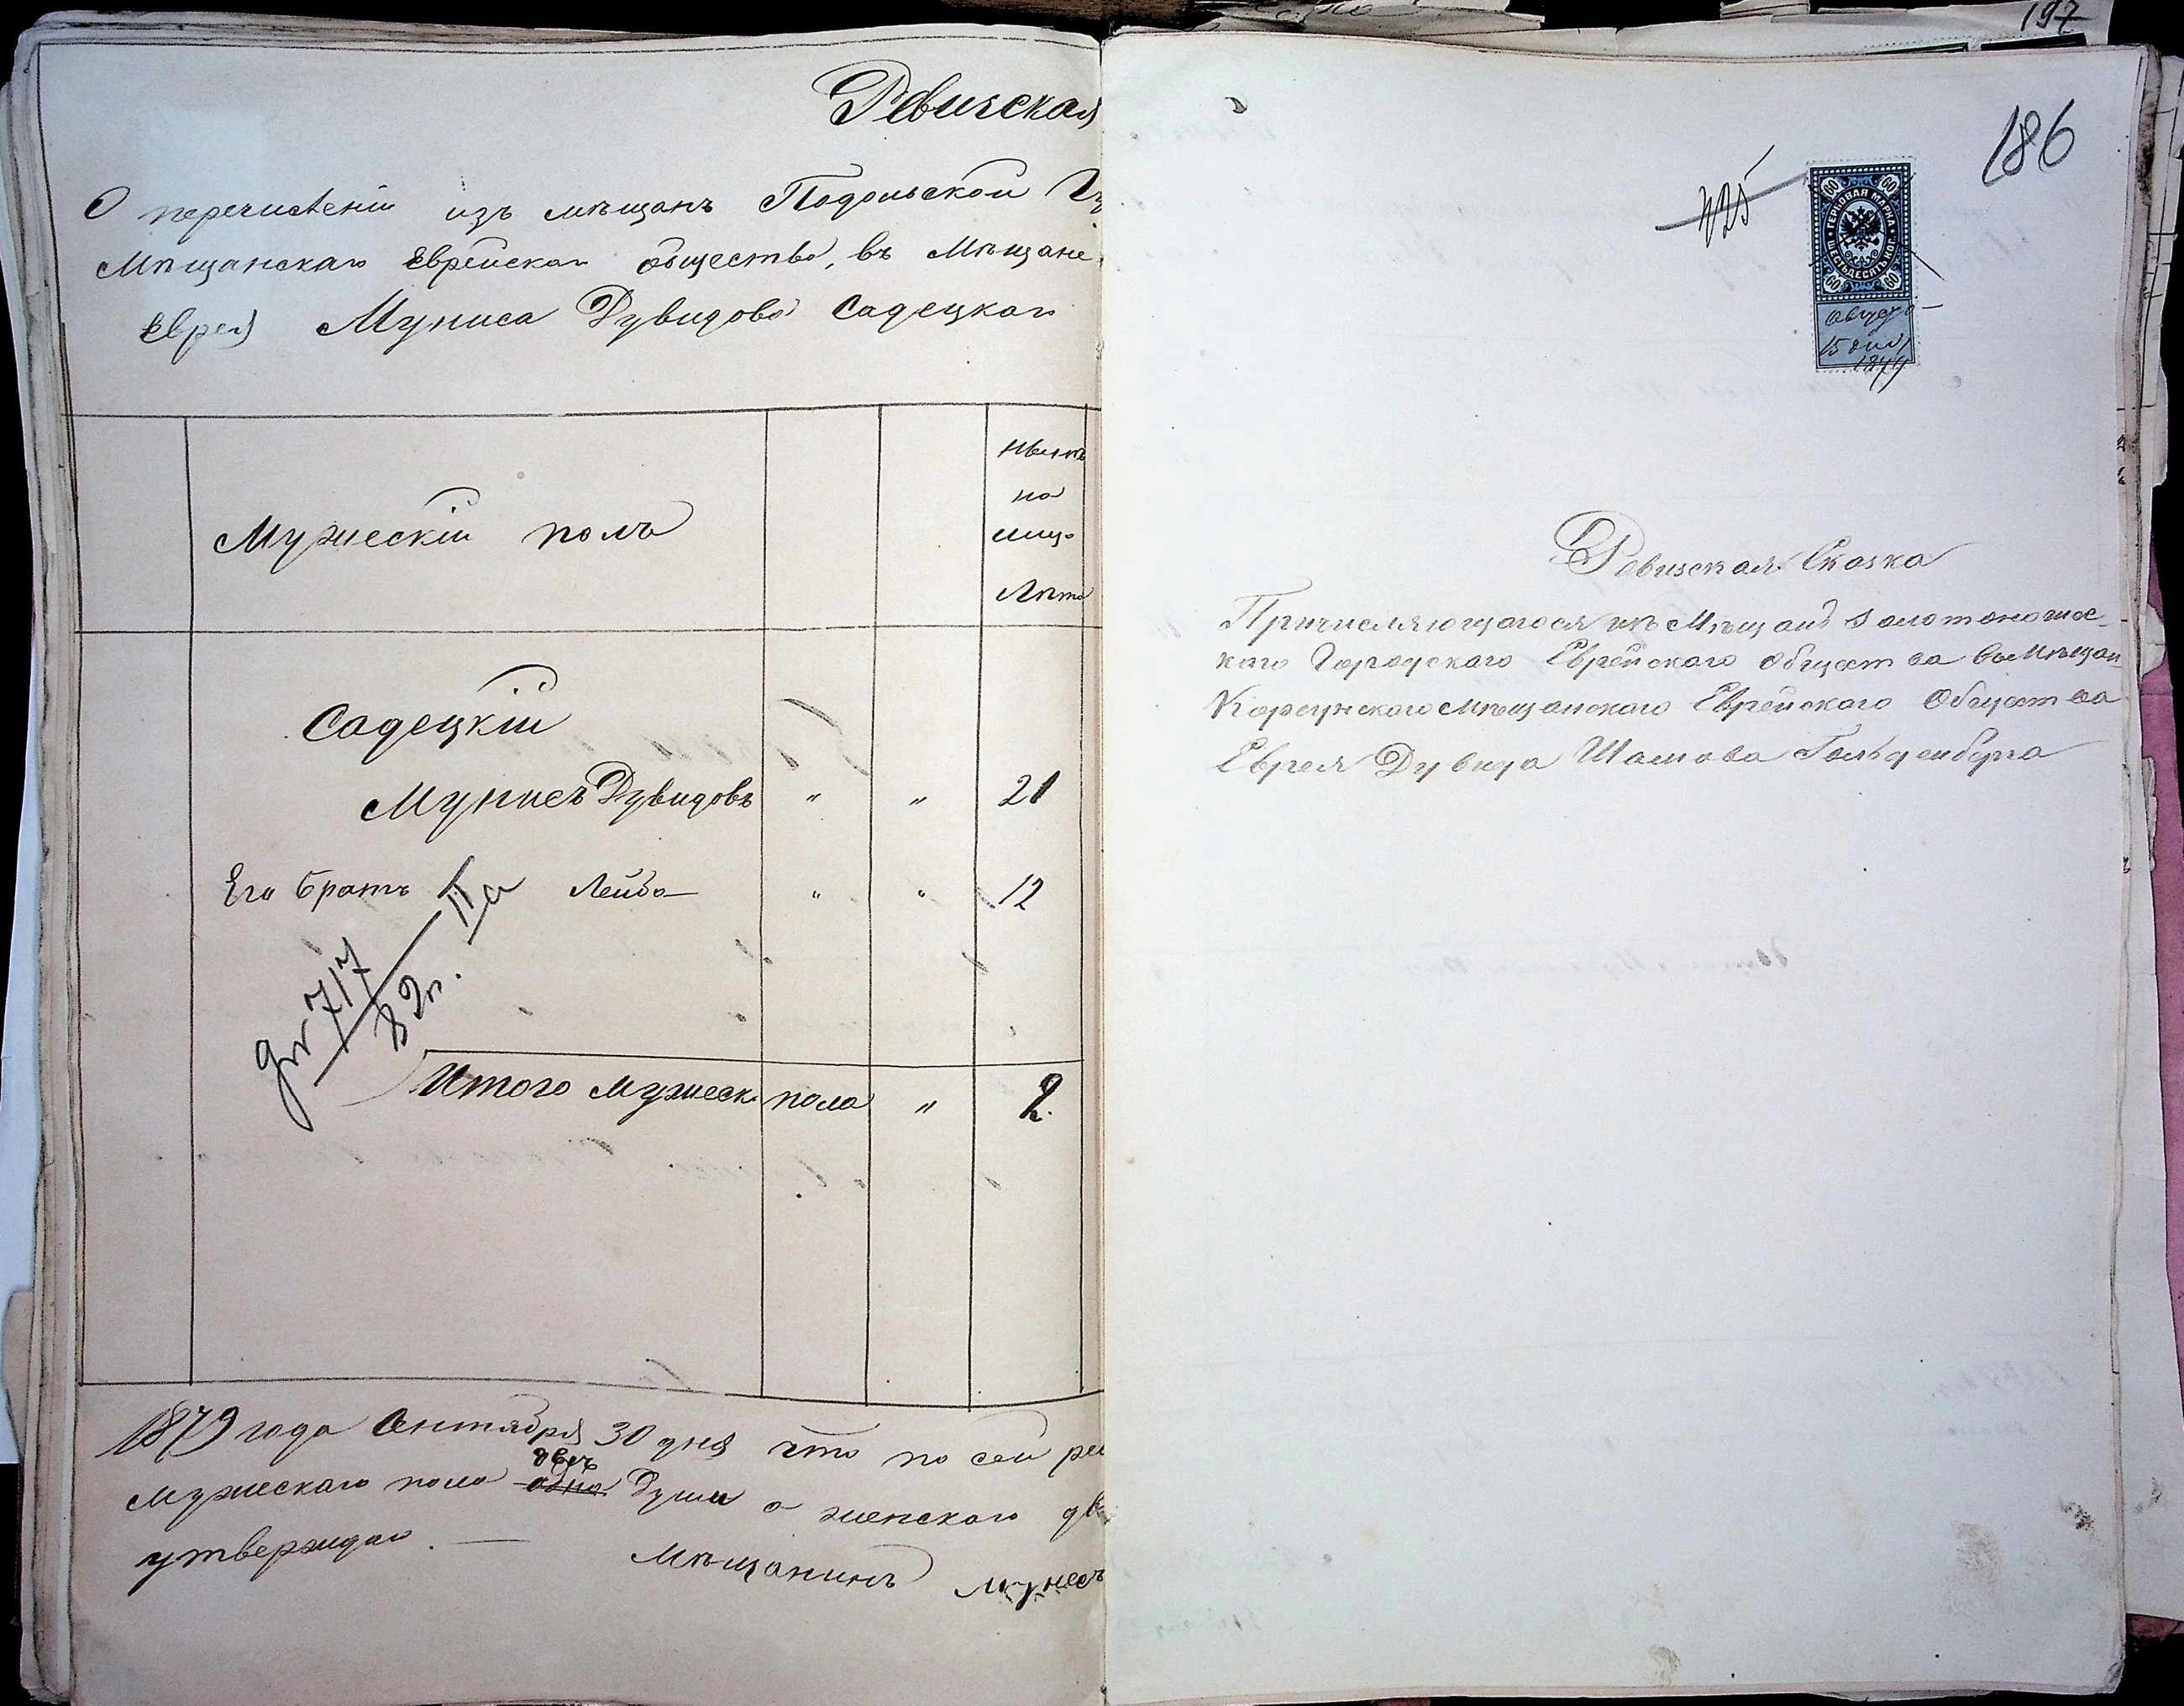 Ревизская
О перечисленіи изъ мѣщанъ Подольской Гу
Мѣщанскаго Еврейскаго общества, въ Мѣщане
Еврея Муниса Дувидова Садецкаго
Мужескій полъ
нынѣ
на
лицо
Лѣта
Садецкій
Мунисъ Дувидовъ " " 21
Его братъ Лейба " " 12
717
82 г.
Итого мужеск. пола " 2.
1879 года Сентября 30 дня что по сей ре
двѣ
мужескаго пола одна души а женскаго дв
утверждаю. —
Мѣщанинъ Мунесъ
197
186
725
60 60
ГЕРБОВАЯ МАРКА
ШЕСТЬДЕСЯТЪ КОП.
60 60
Августа
15 дня
1879
Ревизская Сказка
Причисляющагося изъ Мѣщанъ Золотоношс-
каго Городскаго Еврейскаго Общества въ Мѣщан
Корсунскаго Мѣщанскаго Еврейскаго Общества
Еврея Дувида Шамова Гольденберга